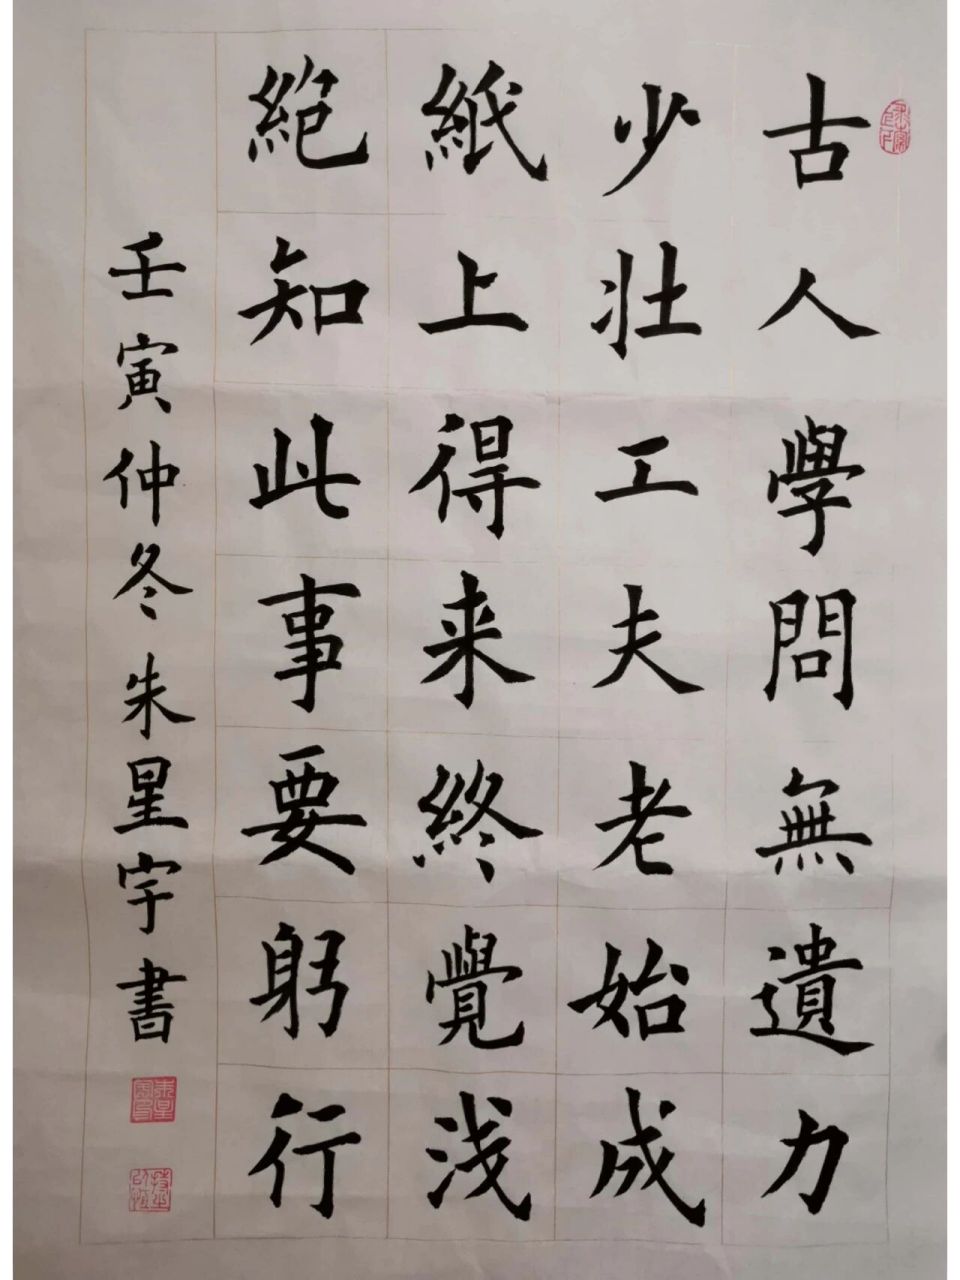 古人學問無遺力
少壯工夫老始成
紙上得来終覺浅
絕知此事要躬行
壬寅仲冬朱星宇書